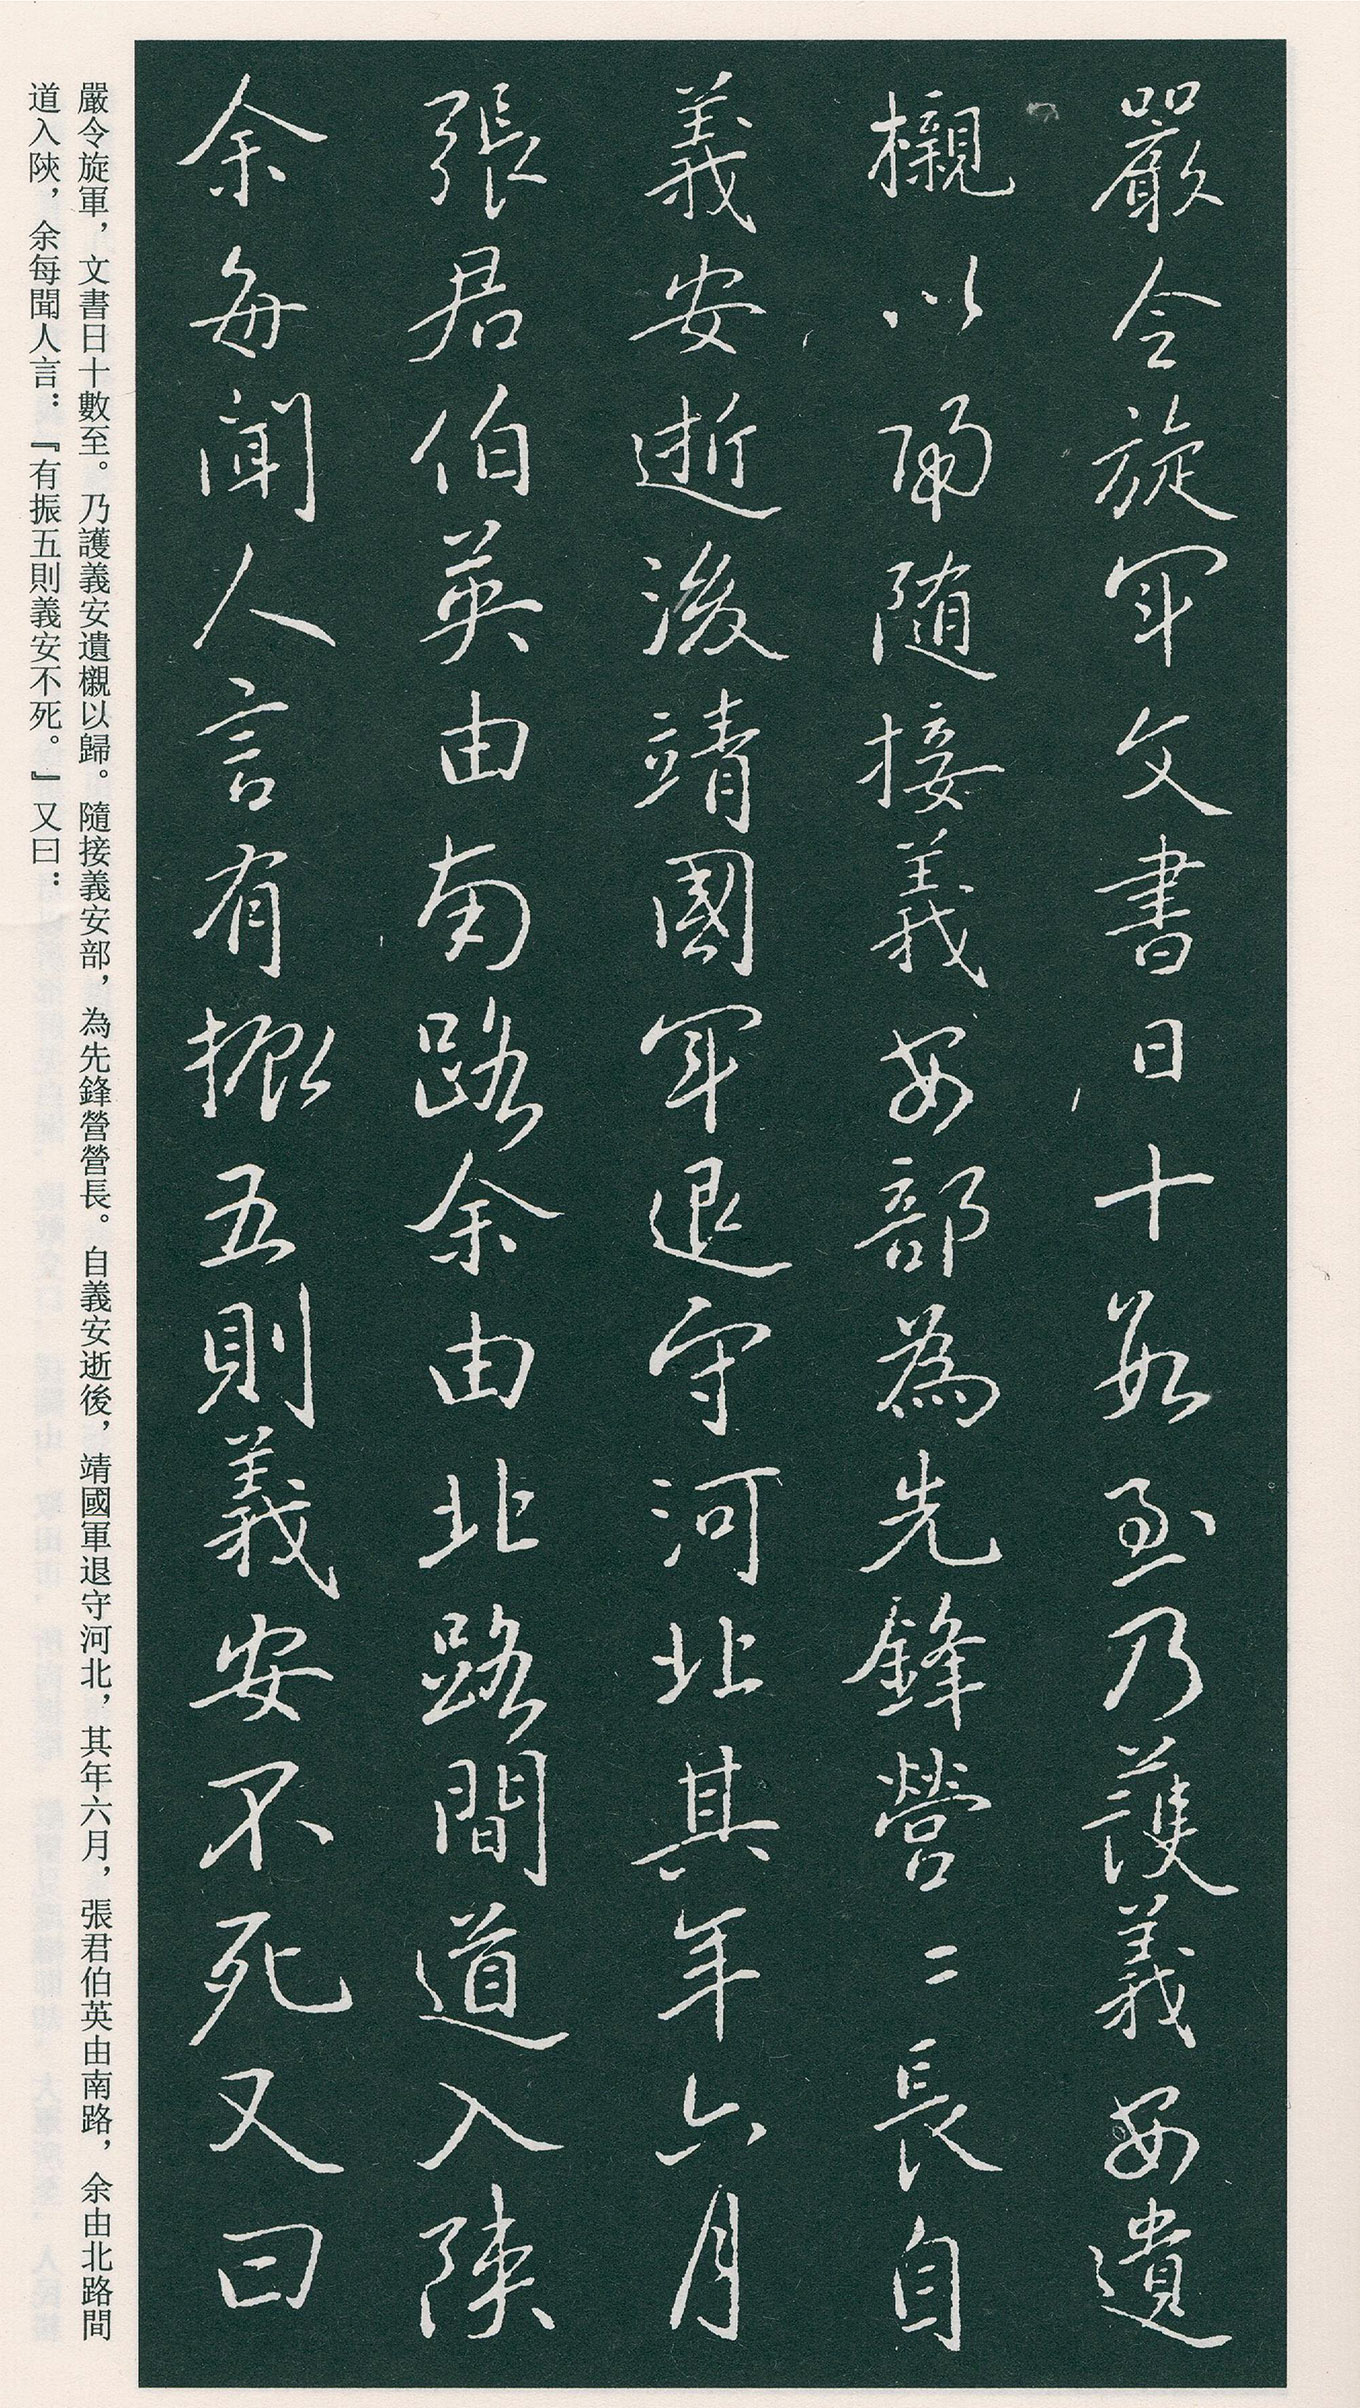 嚴令旋軍文書日十數至乃護義安遺
櫬以歸隨接義安部為先鋒營〻長自
義安逝後靖國軍退守河北其年六月
張君伯英由南路余由北路間道入陝
余每聞人言有振五則義安不死又曰
嚴令旋軍，文書日十數至。乃護義安遺櫬以歸。隨接義安部，為先鋒營營長。自義安逝後，靖國軍退守河北，其年六月，張君伯英由南路，余由北路間
道入陝，余每聞人言：『有振五則義安不死。』又曰：